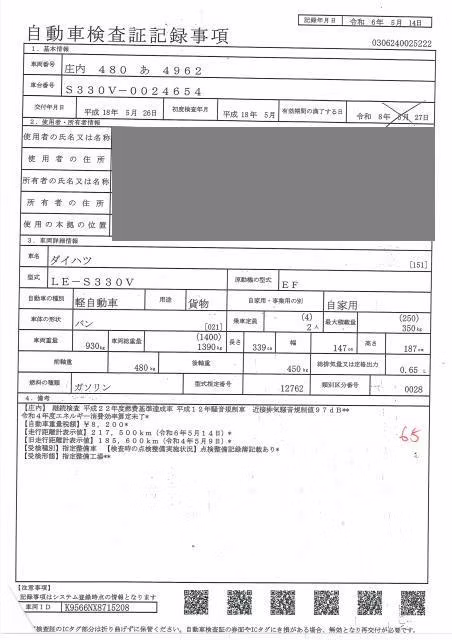 自動車検査証記録事項
記録年月日 令和 6年 5月 14日
0306240025222
1. 基本情報
車両番号 庄内 480 あ 4962
車台番号 S330V-0024654
交付年月日 平成 18年 5月 26日 初度検査年月 平成 18年 5月 有効期間の満了する日 令和 8年 5月 27日
2. 使用者・所有者情報
使用者の氏名又は名称
使用者の住所
所有者の氏名又は名称
所有者の住所
使用の本拠の位置
3. 車両詳細情報
車名 ダイハツ [151]
型式 LE-S330V 原動機の型式 EF
自動車の種別 軽自動車 用途 貨物 自家用・事業用の別 自家用
車体の形状 バン [021] 乗車定員 (4) 2人 最大積載量 (250) 350kg
車両重量 930kg 車両総重量 (1400) 1390kg 長さ 339cm 幅 147cm 高さ 187cm
前軸重 480kg 後軸重 450kg 総排気量又は定格出力 0.65 L
燃料の種類 ガソリン 型式指定番号 12762 類別区分番号 0028
4. 備考
【庄内】 継続検査 平成22年度燃費基準達成車 平成12年騒音規制車 近接排気騒音規制値97dB**
令和4年度エネルギー消費効率算定未了*
【自動車重量税額】¥8,200*
【走行距離計表示値】217,500km(令和6年5月14日)*
【旧走行距離計表示値】185,600km(令和4年5月9日)*
【受検種別】指定整備車 【検査時の点検整備実施状況】点検整備記録簿記載あり*
【受検形態】指定整備工場**
65
【注意事項】
記録事項はシステム登録時点の情報となります
車両ID K9566NX8715208
検査証のICタグ部分は折り曲げずに保管ください。自動車検査証の券面やICタグにき損がある場合、無効となり再交付が必要です。